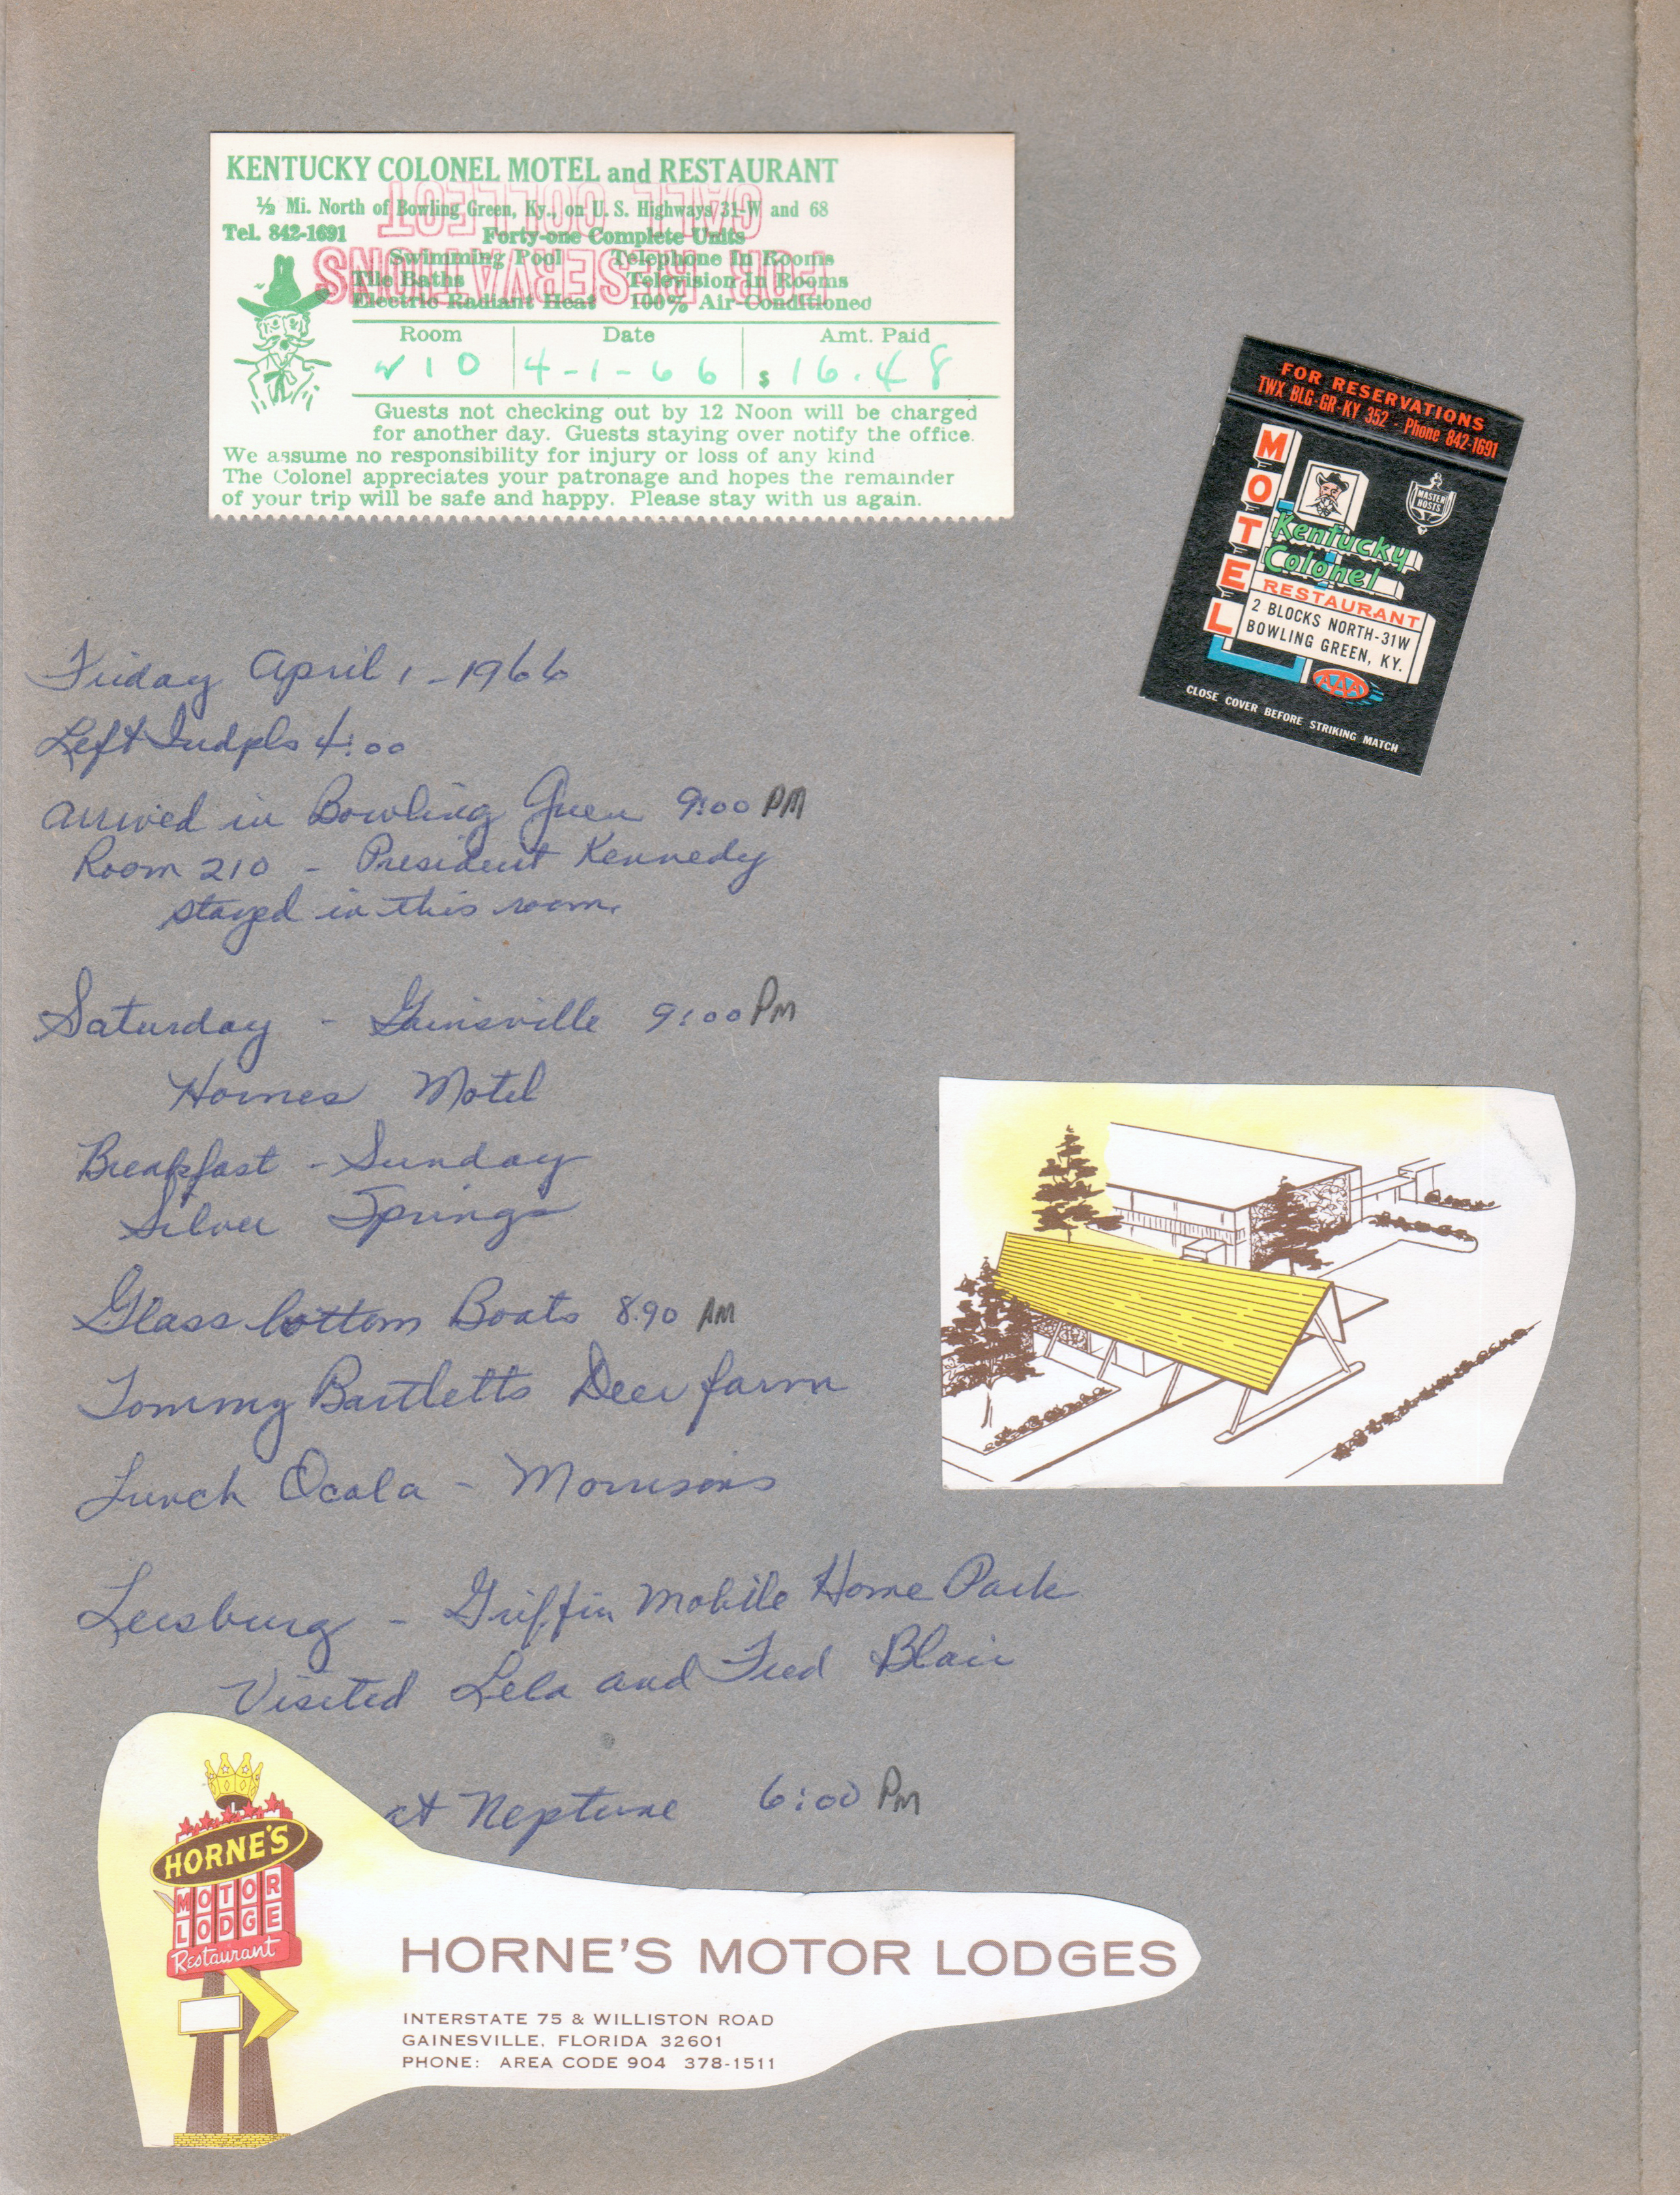 KENTUCKY COLONEL MOTEL and RESTAURANT
½ Mi. North of Bowling Green, Ky., on U. S. Highways 31-W and 68
Tel. 842-1691 Forty-one Complete Units
Swimming Pool Telephone In Rooms
Tile Baths Television In Rooms
Electric Radiant Heat 100% Air-Conditioned
FOR RESERVATIONS
CALL COLLECT
Room Date Amt. Paid
210 4-1-66 $ 16.48
Guests not checking out by 12 Noon will be charged
for another day. Guests staying over notify the office.
We assume no responsibility for injury or loss of any kind
The Colonel appreciates your patronage and hopes the remainder
of your trip will be safe and happy. Please stay with us again.
FOR RESERVATIONS
TWX BLG-GR-KY 352 - Phone 842-1691
MOTEL
MASTER
HOSTS
Kentucky
Colonel
RESTAURANT
2 BLOCKS NORTH-31W
BOWLING GREEN, KY.
AAA
CLOSE COVER BEFORE STRIKING MATCH
Friday April 1 - 1966
Left Indpls 4:00
arrived in Bowling Green 9:00 PM
Room 210 - President Kennedy
stayed in this room.
Saturday - Gainsville 9:00 PM
Hornes Motel
Breakfast - Sunday
Silver Springs
Glass bottom Boats 8:90 AM
Tommy Bartletts Deer farm
Lunch Ocala - Morrisons
Leesburg - Griffin Mobile Home Park
Visited Lela and Fred Blair
at Neptune 6:00 PM
HORNE'S
MOTOR
LODGE
Restaurant
HORNE'S MOTOR LODGES
INTERSTATE 75 & WILLISTON ROAD
GAINESVILLE, FLORIDA 32601
PHONE: AREA CODE 904 378-1511